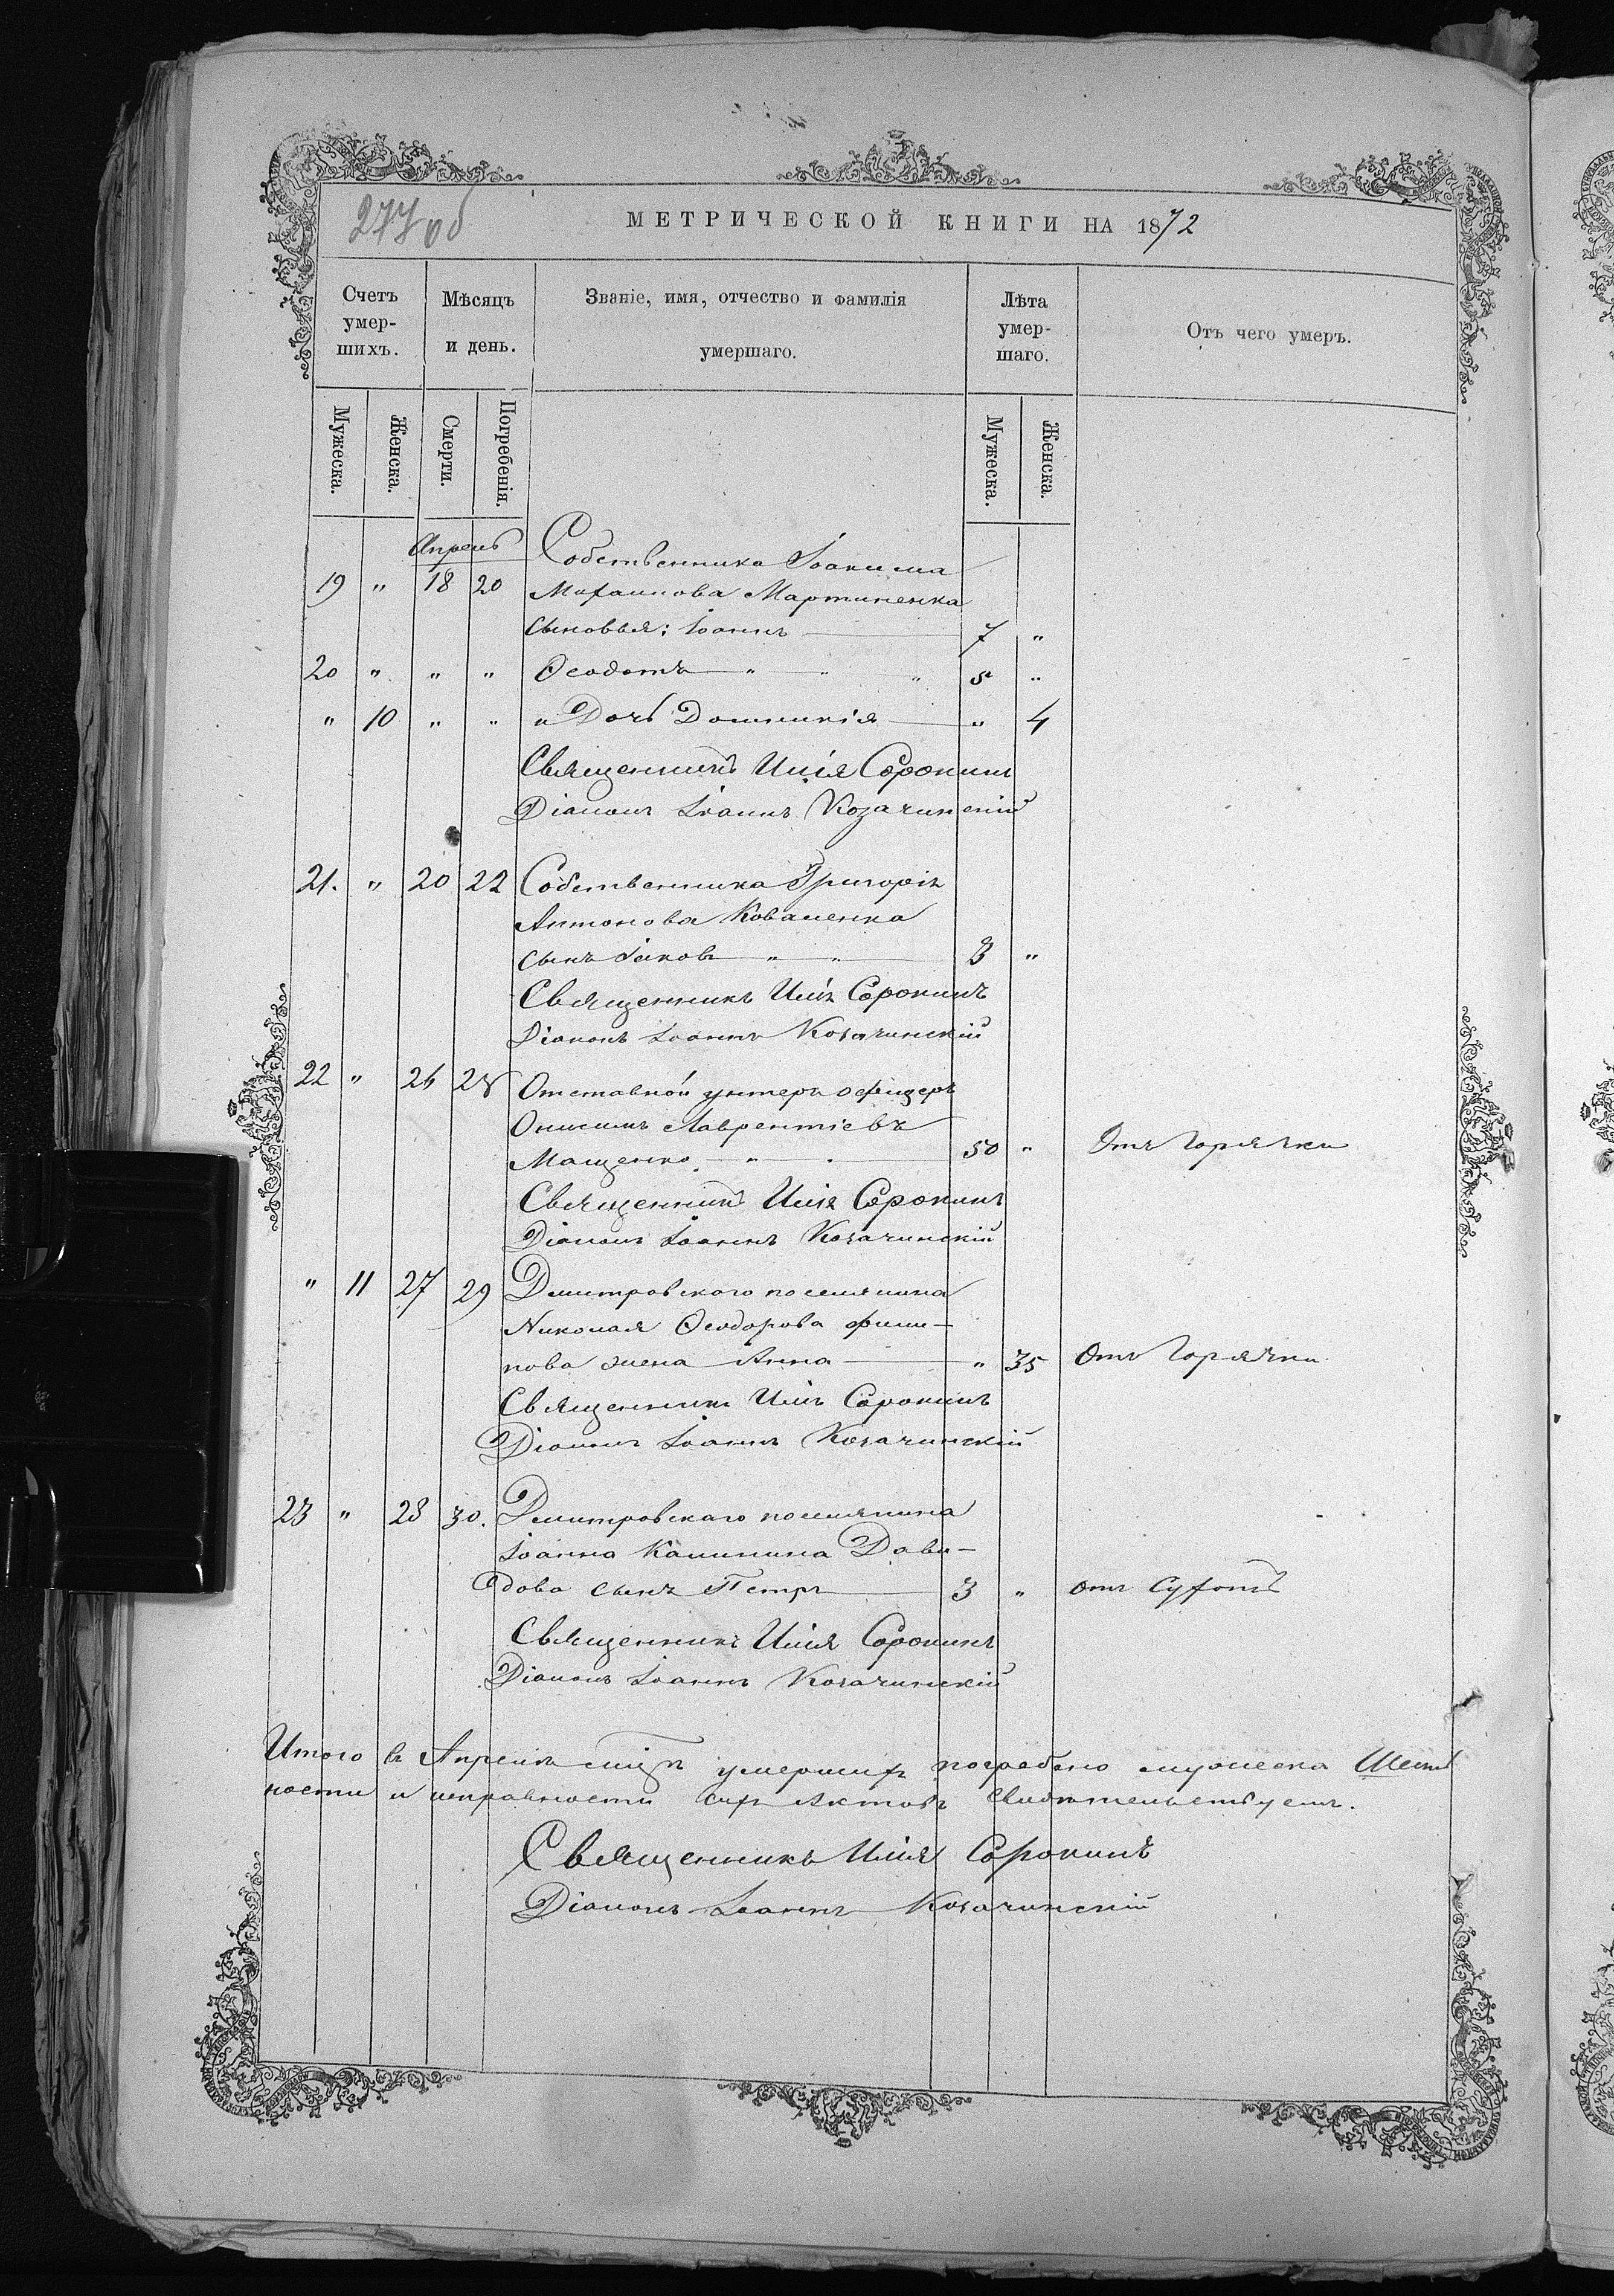 277 об
МЕТРИЧЕСКОЙ КНИГИ НА 1872
Счетъ умер-шихъ. Мѣсяцъ и день. Званіе, имя, отчество и фамилія умершаго. Лѣта умер-шаго. Отъ чего умеръ.
Мужеска. Женска. Смерти. Погребенія. Мужеска. Женска.
Апрель Собственника Іоакима
19 " 18 20 Михаилова Мартиненка
сыновья: Іоаннъ 7 "
20 " " " Ѳеодотъ " " " 5 "
" 10 " " и Дочь Домникія " 4
Священникъ Илія Сорокинъ
Діаконъ Іоаннъ Козачинскій
21. " 20 22 Собственника Григорія
Антонова Коваленка
сынъ Іаковъ " " 3 "
Священникъ Илія Сорокинъ
Діаконъ Іоаннъ Козачинскій
22 " 26 28 Отставной унтеръ офицеръ
Онисимъ Лаврентіевъ
Мащенко " 50 " Отъ горячки
Священникъ Илія Сорокинъ
Діаконъ Іоаннъ Козачинскій
" 11 27 29 Дмитровского поселянина
Николая Ѳеодорова фили-
пова жена Анна " 35 Отъ Горячки
Священникъ Илія Сорокинъ
Діаконъ Іоаннъ Козачинскій
23 " 28 30. Дмитровскаго поселянина
Іоанна Калинина Дави-
дова сынъ Петръ 3 " отъ Сухотъ
Священникъ Илія Сорокинъ
Діаконъ Іоаннъ Козачинскій
Итого въ Апрелѣ умершихъ погребено мужеска
ности и исправности сихъ Актовъ свидѣтельствуемъ.
Священникъ Илія Сорокинъ
Діаконъ Іоаннъ Козачинскій